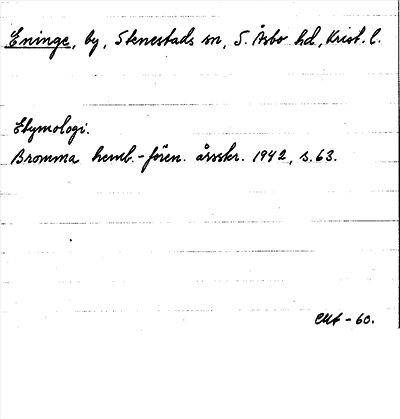 Eninge, by, Stenestads sn, S. Åsbo hd, Krist. l.
Etymologi.
Bromma hemb.-fören. årsskr. 1942, s. 63.
-60.